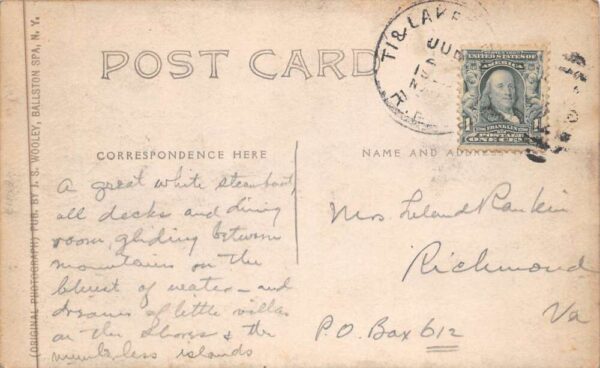 POST CARD
TI & LAKE
JUL
R.P.
UNITED STATES OF
AMERICA
1
1
FRANKLIN
POSTAGE
ONE CENT
CORRESPONDENCE HERE
NAME AND ADDRESS
A great white steamboat,
all decks and dining
room, gliding between
mountains on the
bluest of water – and
dreams of little villas
on the shores & the
numberless islands
Mrs Leland Rankin
Richmond
Va
P.O. Box 612
(ORIGINAL PHOTOGRAPH) PUB. BY J. S. WOOLEY, BALLSTON SPA, N. Y.